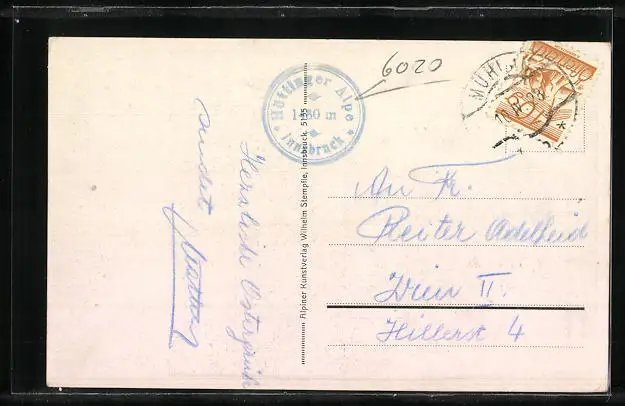 Herzliche Ostergrüße
sendet
Höttinger Alpe
Innsbruck
6020
MÜHL
Alpiner Kunstverlag Wilhelm Stempfle, Innsbruck. 5155
An Fr.
Reiter Adelheid
Wien II.
Hillerst 4